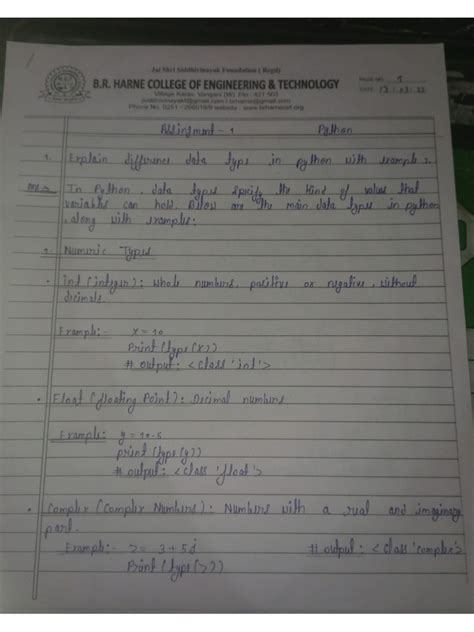 Jai Shri Siddhivinayak Foundation ( Regd)
B.R. HARNE COLLEGE OF ENGINEERING & TECHNOLOGY
Village Karav, Vangani (W) Pin : 421 503
Phone No. 0251 - 2060169
PAGE NO. 1
DATE
Assignment - 1 Python
1. Explain difference data type in python with example.
In Python, data types specify the kind of values that
variables can hold. Below are the main data types in python
, along with examples:
Numeric Types
• int (integer): whole numbers, positive or negative, without
dicimals.
Example:- x = 10
Print (type (x))
# output: <class 'int'>
• Float (floating Point): Decimal numbers
Example: y = 10.5
print (type (y))
# output: <class 'float'>
• Complex (Complex Numbers): Numbers with a real and imaginary
part.
Example:- z = 3 + 5j # output: <class 'complex'>
Print (type (z))